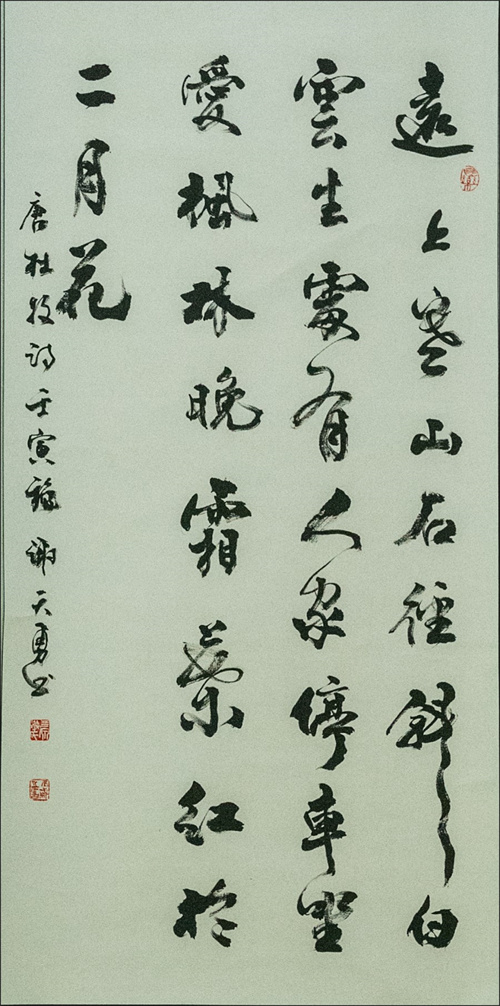 遠上寒山石徑斜白
雲生處有人家停車坐
愛楓林晚霜葉紅於
二月花
唐杜牧詩壬寅 謝天勇書